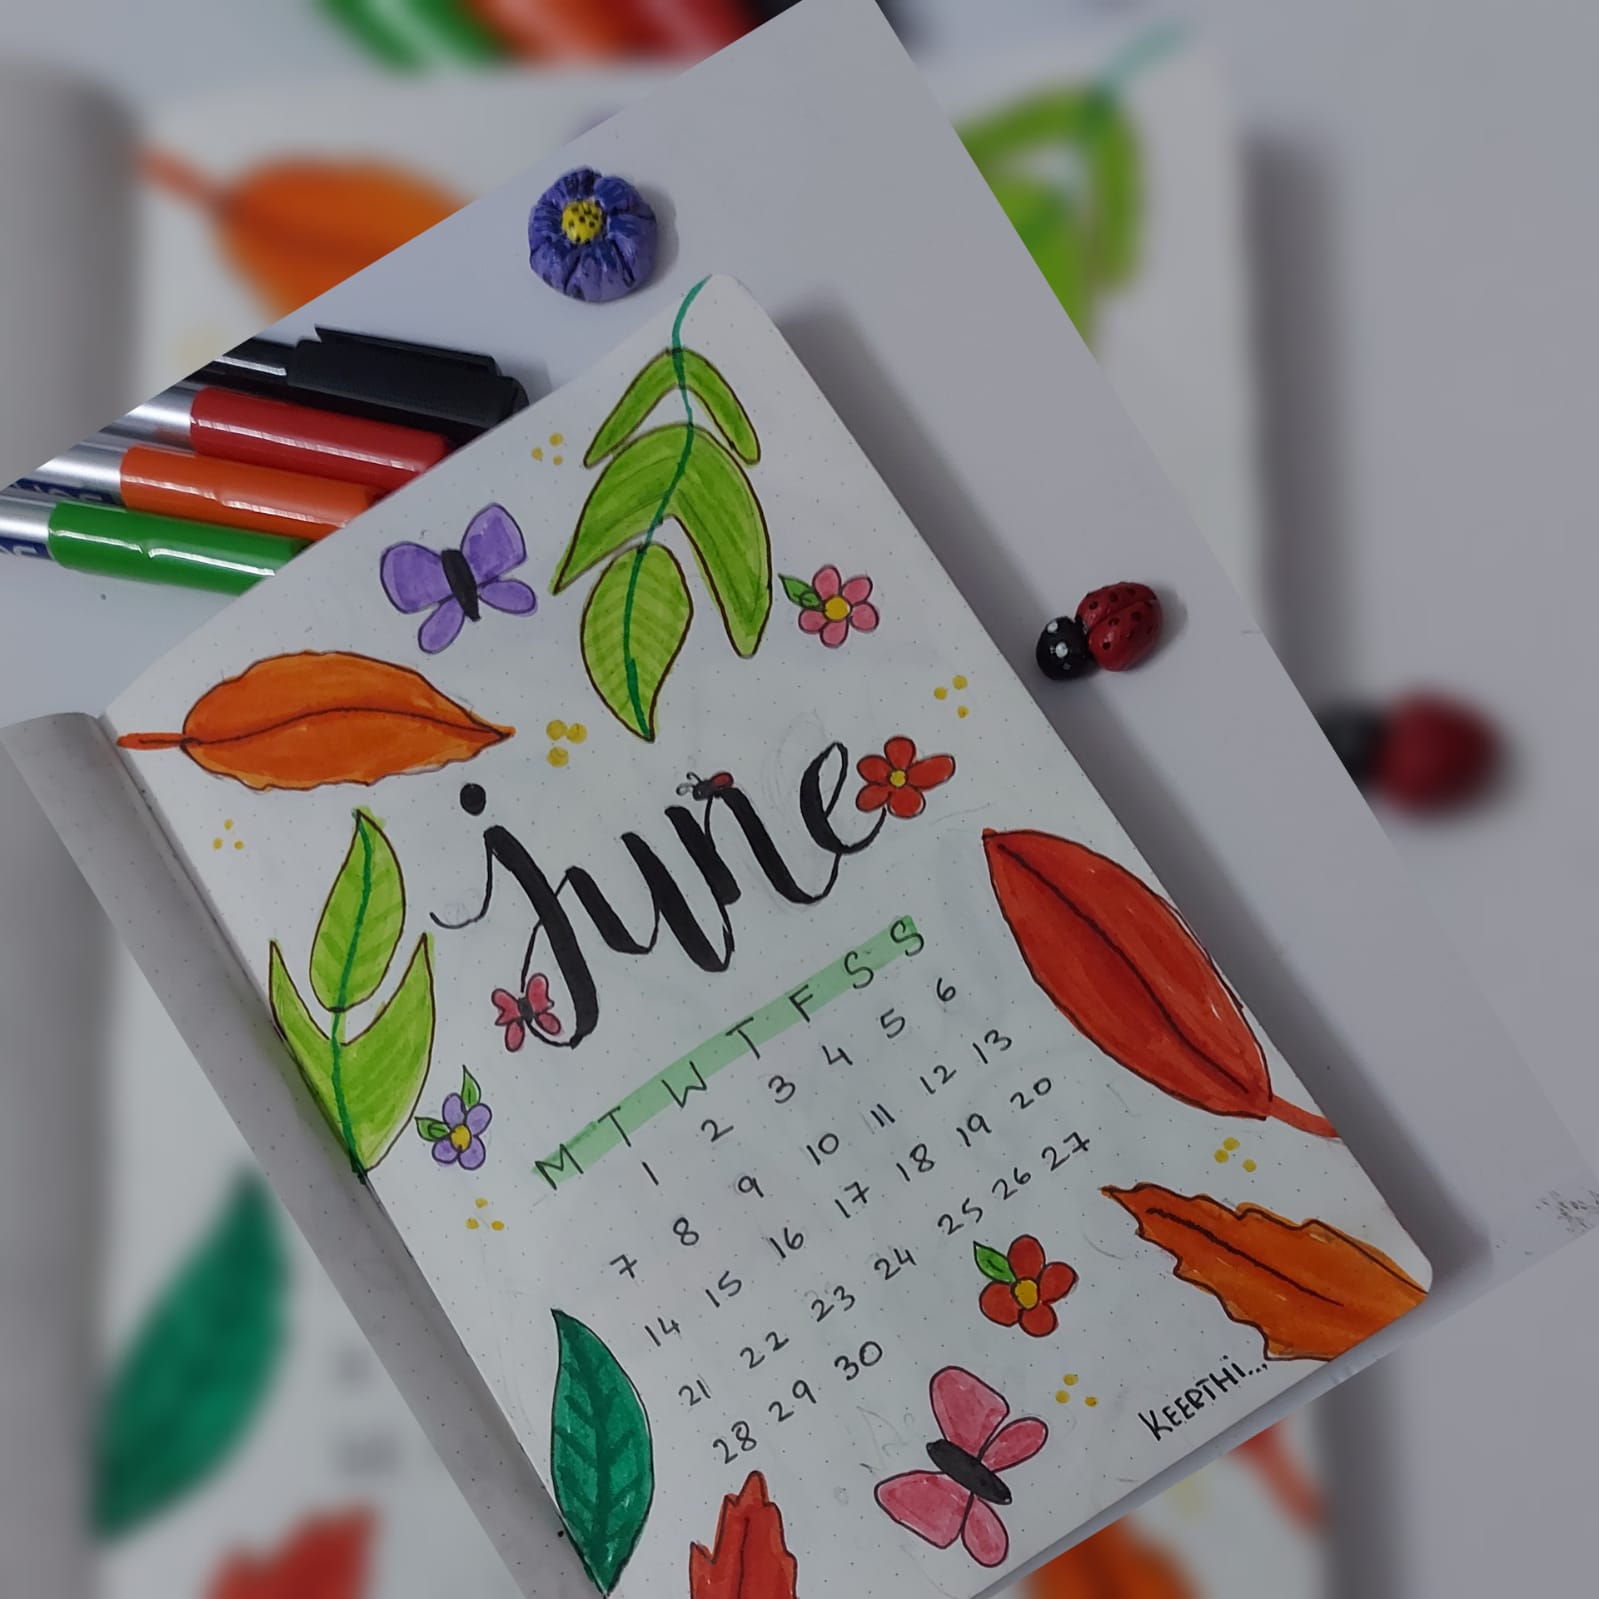 june
M T W T F S S
1 2 3 4 5 6
7 8 9 10 11 12 13
14 15 16 17 18 19 20
21 22 23 24 25 26 27
28 29 30
KEERTHI...